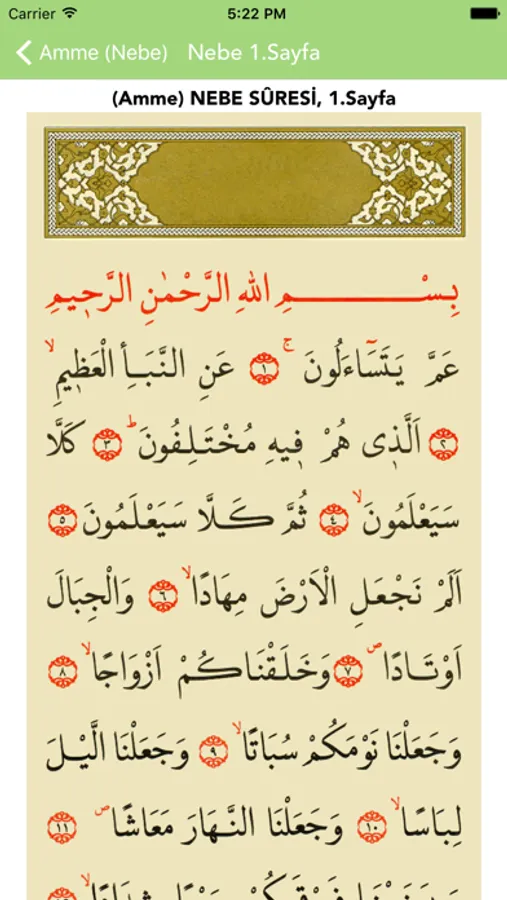 Carrier 5:22 PM
Amme (Nebe) Nebe 1.Sayfa
(Amme) NEBE SÛRESİ, 1.Sayfa
بِسْــــــمِ اللهِ الرَّحْمٰنِ الرَّحٖيمِ
عَمَّ يَتَسَٓاءَلُونَۚ ﴿١﴾ عَنِ النَّبَأِ الْعَظٖيمِۙ
﴿٢﴾ اَلَّذٖى هُمْ فٖيهِ مُخْتَلِفُونَؕ ﴿٣﴾ كَلَّا
سَيَعْلَمُونَۙ ﴿٤﴾ ثُمَّ كَلَّا سَيَعْلَمُونَ ﴿٥﴾
اَلَمْ نَجْعَلِ الْاَرْضَ مِهَادًاۙ ﴿٦﴾ وَالْجِبَالَ
اَوْتَادًاۖ ﴿٧﴾ وَخَلَقْنَاكُمْ اَزْوَاجًاۙ ﴿٨﴾
وَجَعَلْنَا نَوْمَكُمْ سُبَاتًاۙ ﴿٩﴾ وَجَعَلْنَا الَّيْلَ
لِبَاسًاۙ ﴿١٠﴾ وَجَعَلْنَا النَّهَارَ مَعَاشًاۖ ﴿١١﴾